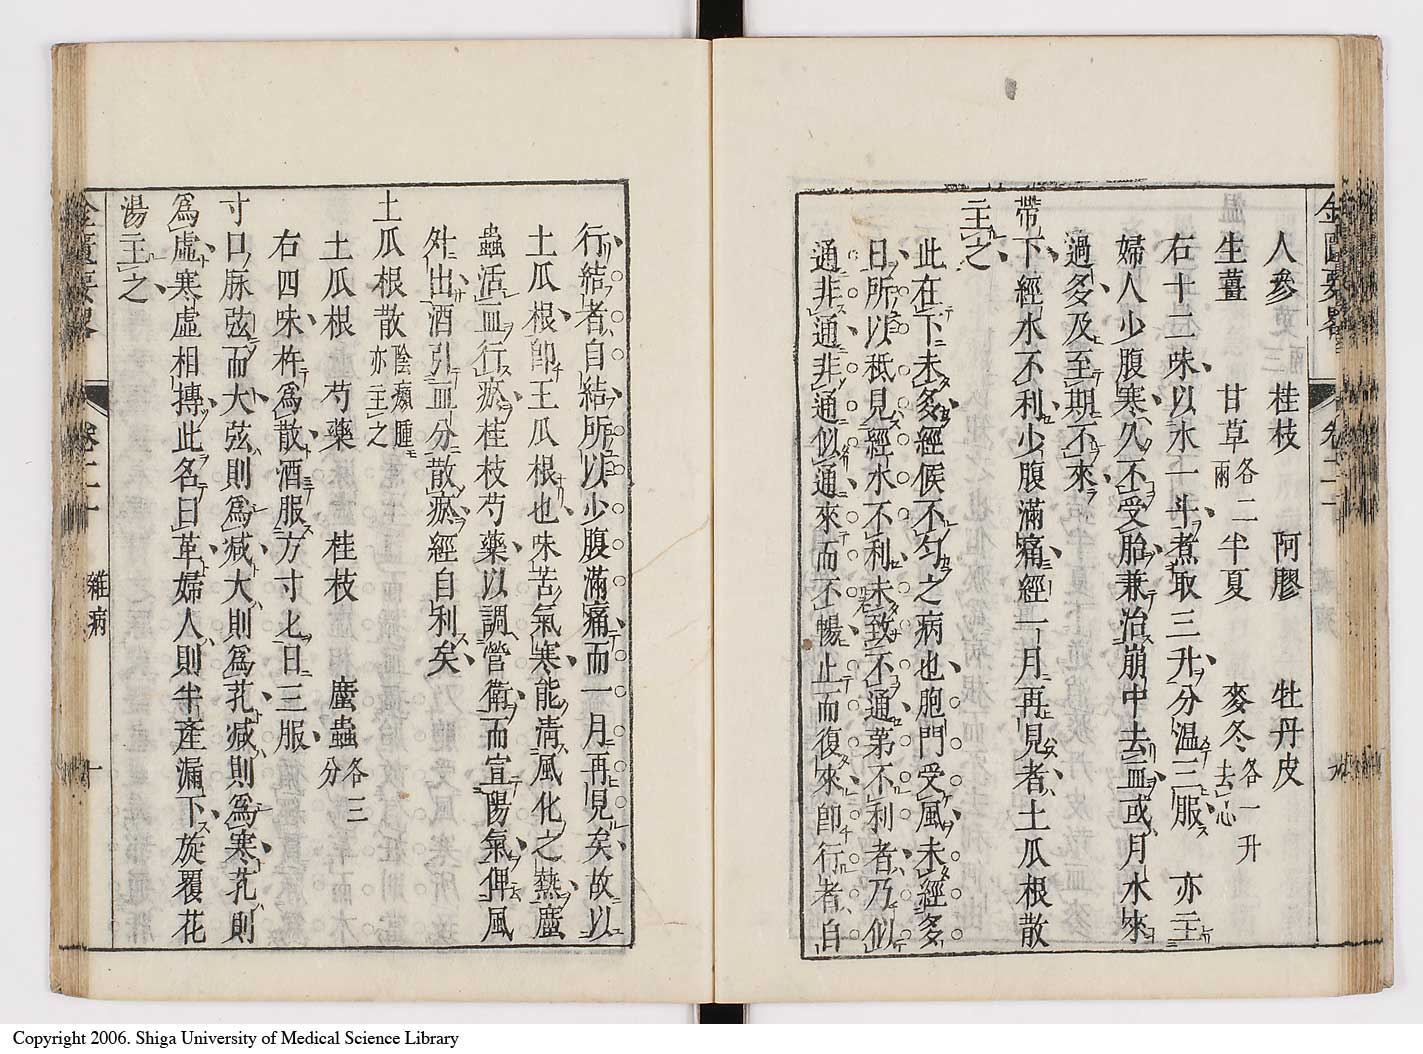 金匱要畧 卷二十一 九
人參 桂枝 阿膠 牡丹皮
生薑 甘草各二兩 半夏 麥冬去心各一升
右十二味以水一斗煮取三升分温三服 亦主
婦人少腹寒久不受胎兼治崩中去血或月水來
過多及至期不來
帶下經水不利少腹滿痛經一月再見者土瓜根散
主之
此在下未多經候不匀之病也胞門受風未經多
日所以祗見經水不利未致不通第不利者乃似
通非通非通似通來而不暢止而復來卽行者自
行結者自結所以少腹滿痛而一月再見矣故以
土瓜根卽王瓜根也味苦氣寒能清風化之熱䗪
蟲活血行瘀桂枝芍藥以調營衛而宣陽氣俾風
外出酒引血分散瘀經自利矣
土瓜根散陰㿗腫亦主之
土瓜根 芍藥 桂枝 䗪蟲各三分
右四味杵爲散酒服方寸匕日三服
寸口脉弦而大弦則爲减大則爲芤减則爲寒芤則
爲虛寒虛相摶此名曰革婦人則半產漏下旋覆花
湯主之
金匱要畧 卷二十一 雜病 十
Copyright 2006. Shiga University of Medical Science Library